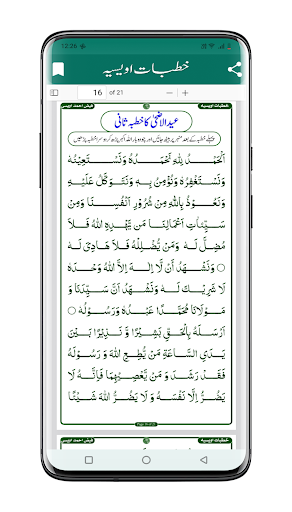 12:26
خطبات اویسیہ
16 of 21
فیض احمد اویسی
خطبات اویسیہ
عیدالاضحیٰ کا خطبہ ثانی
اَلْحَمْدُ لِلّٰہِ نَحْمَدُہٗ وَنَسْتَعِیْنُہٗ
وَنَسْتَغْفِرُہٗ وَنُؤْمِنُ بِہٖ وَنَتَوَکَّلُ عَلَیْہِ
وَنَعُوْذُ بِاللّٰہِ مِنْ شُرُوْرِ اَنْفُسِنَا وَمِنْ
سَیِّئَاتِ اَعْمَالِنَا مَنْ یَّہْدِہِ اللّٰہُ فَلَا
مُضِلَّ لَہٗ وَمَنْ یُّضْلِلْہُ فَلَا ہَادِیَ لَہٗ
○ وَنَشْہَدُ اَنْ لَّا اِلٰہَ اِلَّا اللّٰہُ وَحْدَہٗ
لَا شَرِیْکَ لَہٗ وَنَشْہَدُ اَنَّ سَیِّدَنَا وَ
مَوْلَانَا مُحَمَّدًا عَبْدُہٗ وَرَسُوْلُہٗ ○
اَرْسَلَہٗ بِالْحَقِّ بَشِیْرًا وَّ نَذِیْرًا بَیْنَ
یَدَیِ السَّاعَۃِ مَنْ یُّطِعِ اللّٰہَ وَ رَسُوْلَہٗ
فَقَدْ رَشَدَ وَ مَنْ یَّعْصِہِمَا فَاِنَّہٗ لَا
یَضُرُّ اِلَّا نَفْسَہٗ وَ لَا یَضُرُّ اللّٰہَ شَیْئًا
Page 16 of 21
فیض احمد اویسی
خطبات اویسیہ